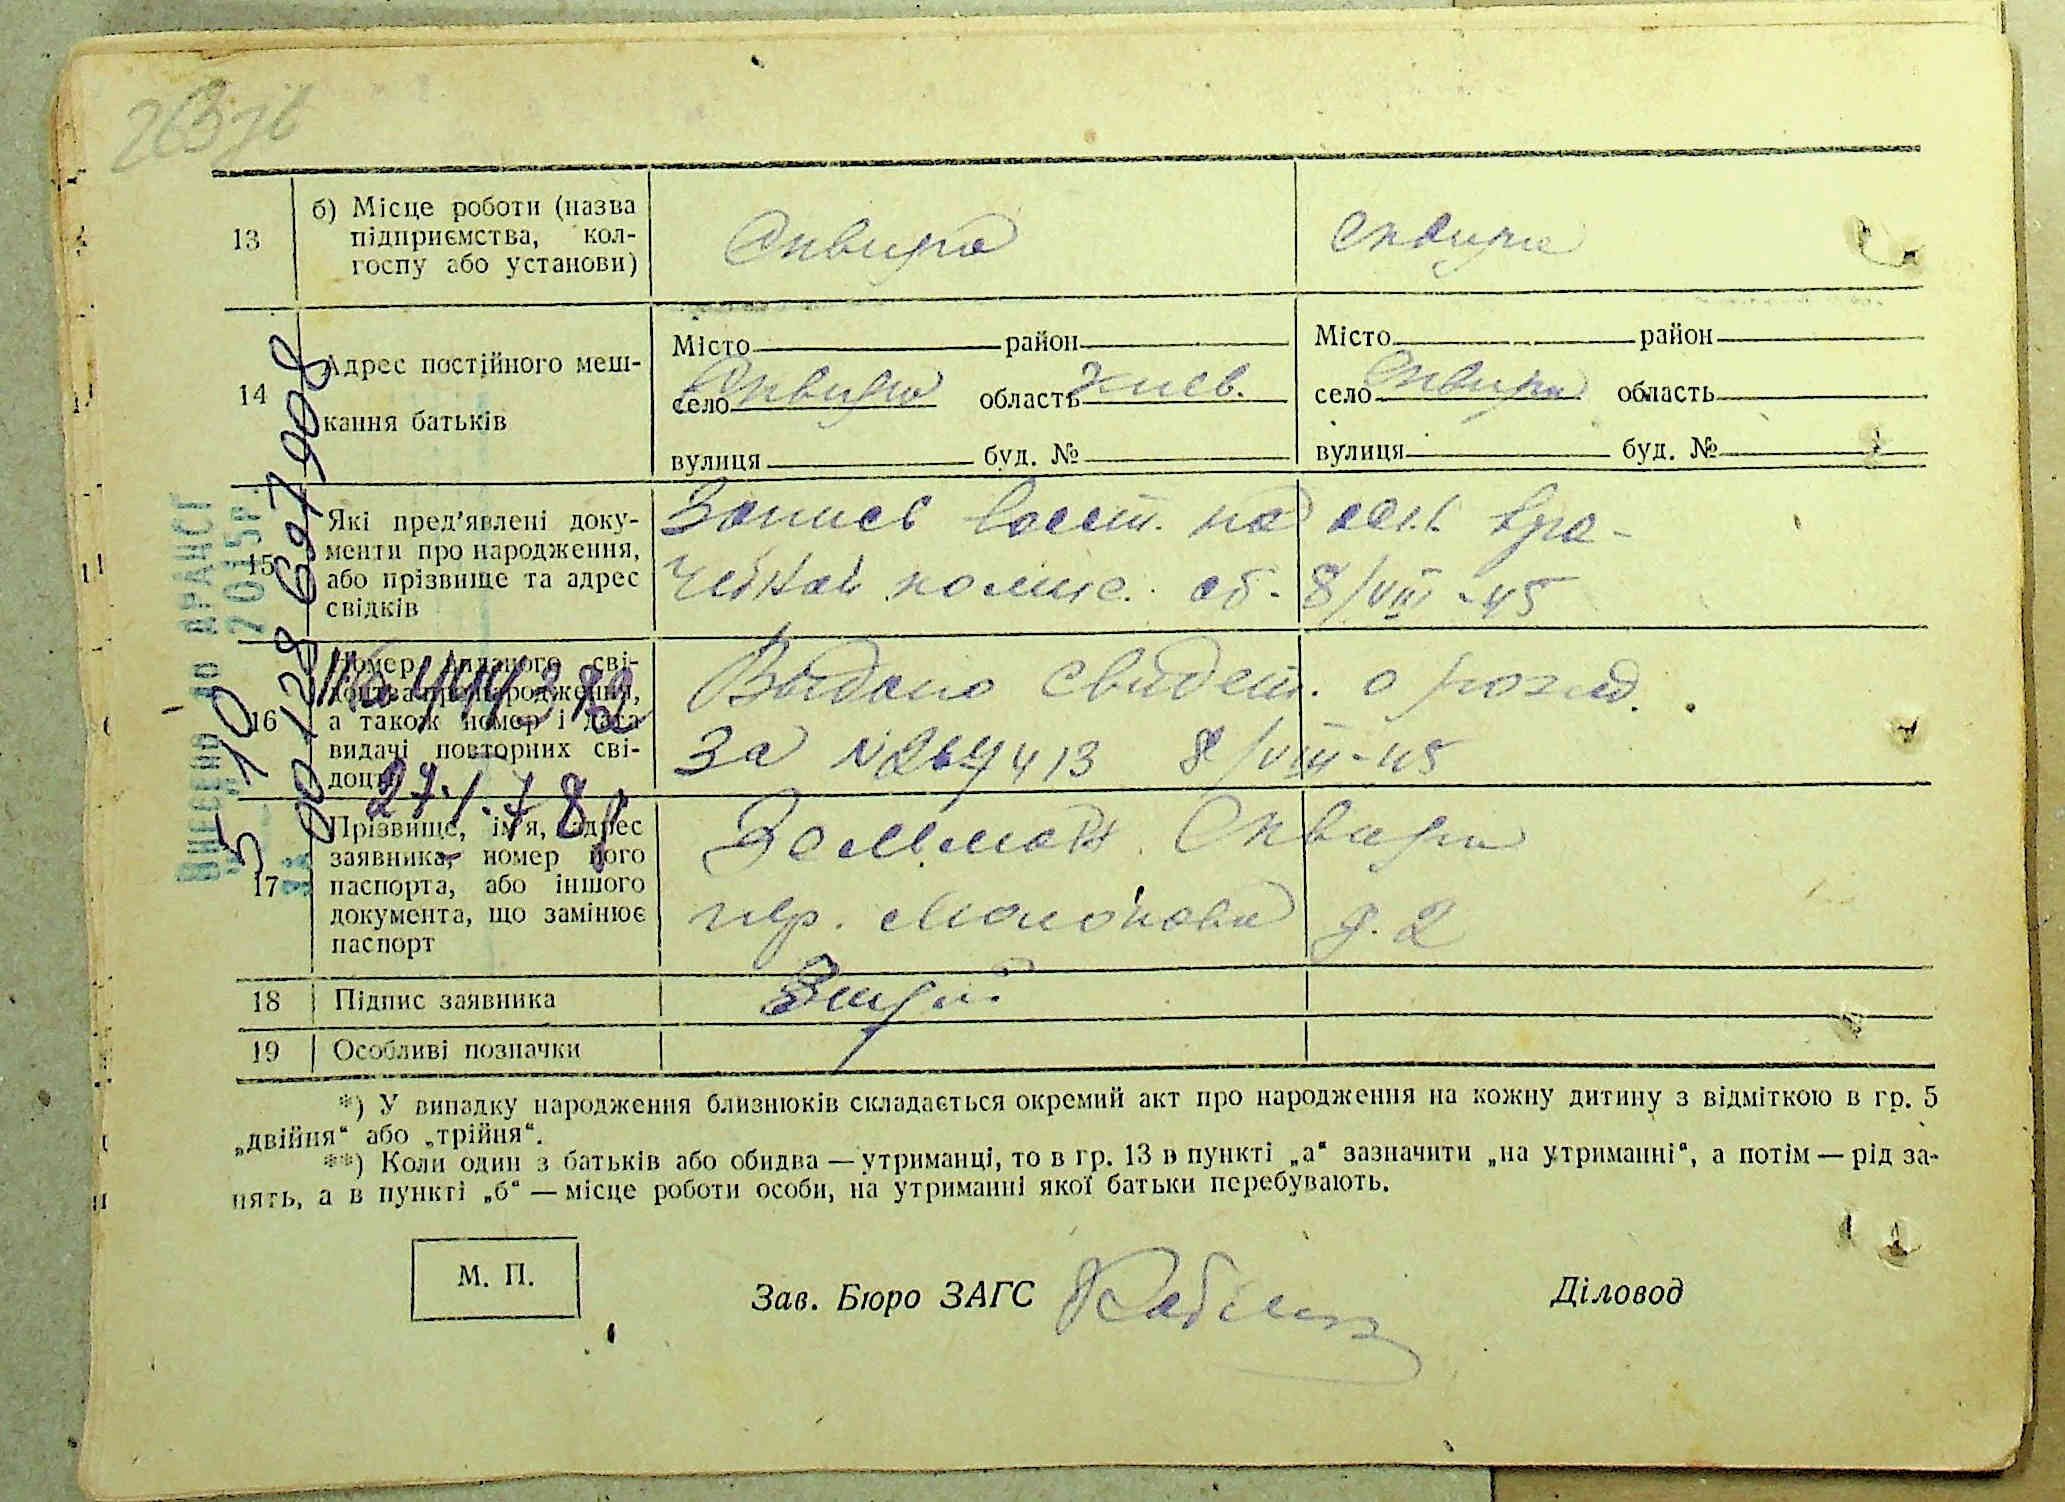 13 б) Місце роботи (назва
підприємства, кол-
госпу або установи)
Сквира Сквира
14 Адрес постійного меш-
кання батьків
Місто район
село Сквира область Киев.
вулиця буд. №
Місто район
село Сквира область
вулиця буд. №
15 Які пред’явлені доку-
менти про народження,
або прізвище та адрес
свідків
Запись восст. на осн. вра-
чебной комис. от. 8/VIII-45
16 Номер виданого сві-
доцтва про народження,
а також номер і дата
видачі повторних сві-
доцтв
Выдано свидет. о рожд.
за № 8/VIII-45
27.1.78р
17 Прізвище, ім’я, адрес
заявника, номер його
паспорта, або іншого
документа, що замінює
паспорт
Сквира
пер. д. 2
18 Підпис заявника
19 Особливі позначки
*) У випадку народження близнюків складається окремий акт про народження на кожну дитину з відміткою в гр. 5
„двійня“ або „трійня“.
**) Коли один з батьків або обидва — утриманці, то в гр. 13 в пункті „а“ зазначити „на утриманні“, а потім — рід за-
нять, а в пункті „б“ — місце роботи особи, на утриманні якої батьки перебувають.
М. П.
Зав. Бюро ЗАГС
Діловод
ВНЕСЕНО ДО ДРАЦСГ
5 10 2015р.
00128697908